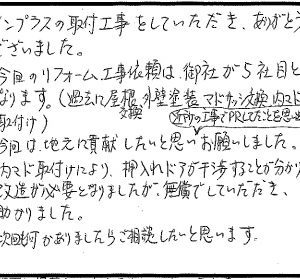 ンプラスの取付工事をしていただき、ありがとう
ございました。
今回のリフォーム工事依頼は、御社が5社目と
なります。(過去に屋根、外壁塗装、マドサッシ交換、内マド
交換
取付け) 近所の工事でPRしたことを思い
今回は、地元に貢献したいと思いお願いしました。
内マド取付けにより、押入れドアが干渉することが分かり
改造が必要となりましたが、無償でしていただき、
助かりました。
次回何かありましたらご相談したいと思います。